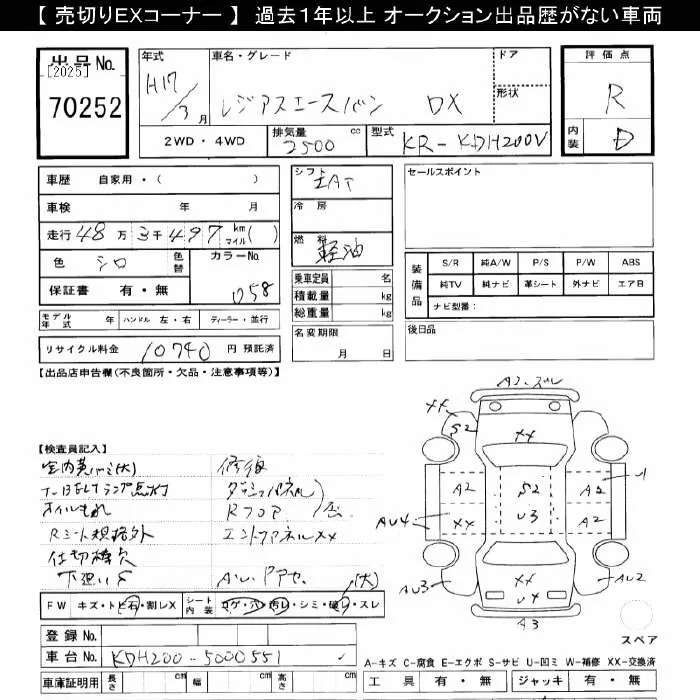 【 売切りEXコーナー 】 過去1年以上 オークション出品歴がない車両
出品 No.
[2025]
70252
年式
H17/3月
車名・グレード
レジアスエースバン DX
ドア
形状
2WD・4WD
排気量 2500 cc
型式 KR-KDH200V
評価点
R
内装 D
車歴 自家用・( )
車検 年 月
走行 48万3千497 km マイル( )
色 シロ 色替
カラーNo. 058
保証書 有・無
モデル年式 年 ハンドル 左・右 ディーラー・並行
リサイクル料金 10740 円 預託済
シフト IAT
冷房
燃料 軽油
乗車定員 名
積載量 kg
総重量 kg
名変期限
月 日
セールスポイント
装備品
S/R 純A/W P/S P/W ABS
純TV 純ナビ 革シート 外ナビ エアB
ナビ型番:
後日品
【出品店申告欄(不良箇所・欠品・注意事項等)】
【検査員記入】
オイルもれ
Rシート規格外
仕切棒欠
修復
Rフロア
FW キズ・トビ石・割レX
シート内装 コゲ・穴・汚レ・シミ・破レ・スレ
(大)
登録 No.
車台 No. KDH200-5000551
車庫証明用 長さ cm 幅 cm 高さ cm
A2・ズレ
XX
S2
XX
A2
S2
A2
U1
AU4
XX
U3
A2
AU3
XX
U4
AU2
A3
スペア
A-キズ C-腐食 E-エクボ S-サビ U-凹ミ W-補修 XX-交換済
工具 有・無 ジャッキ 有・無